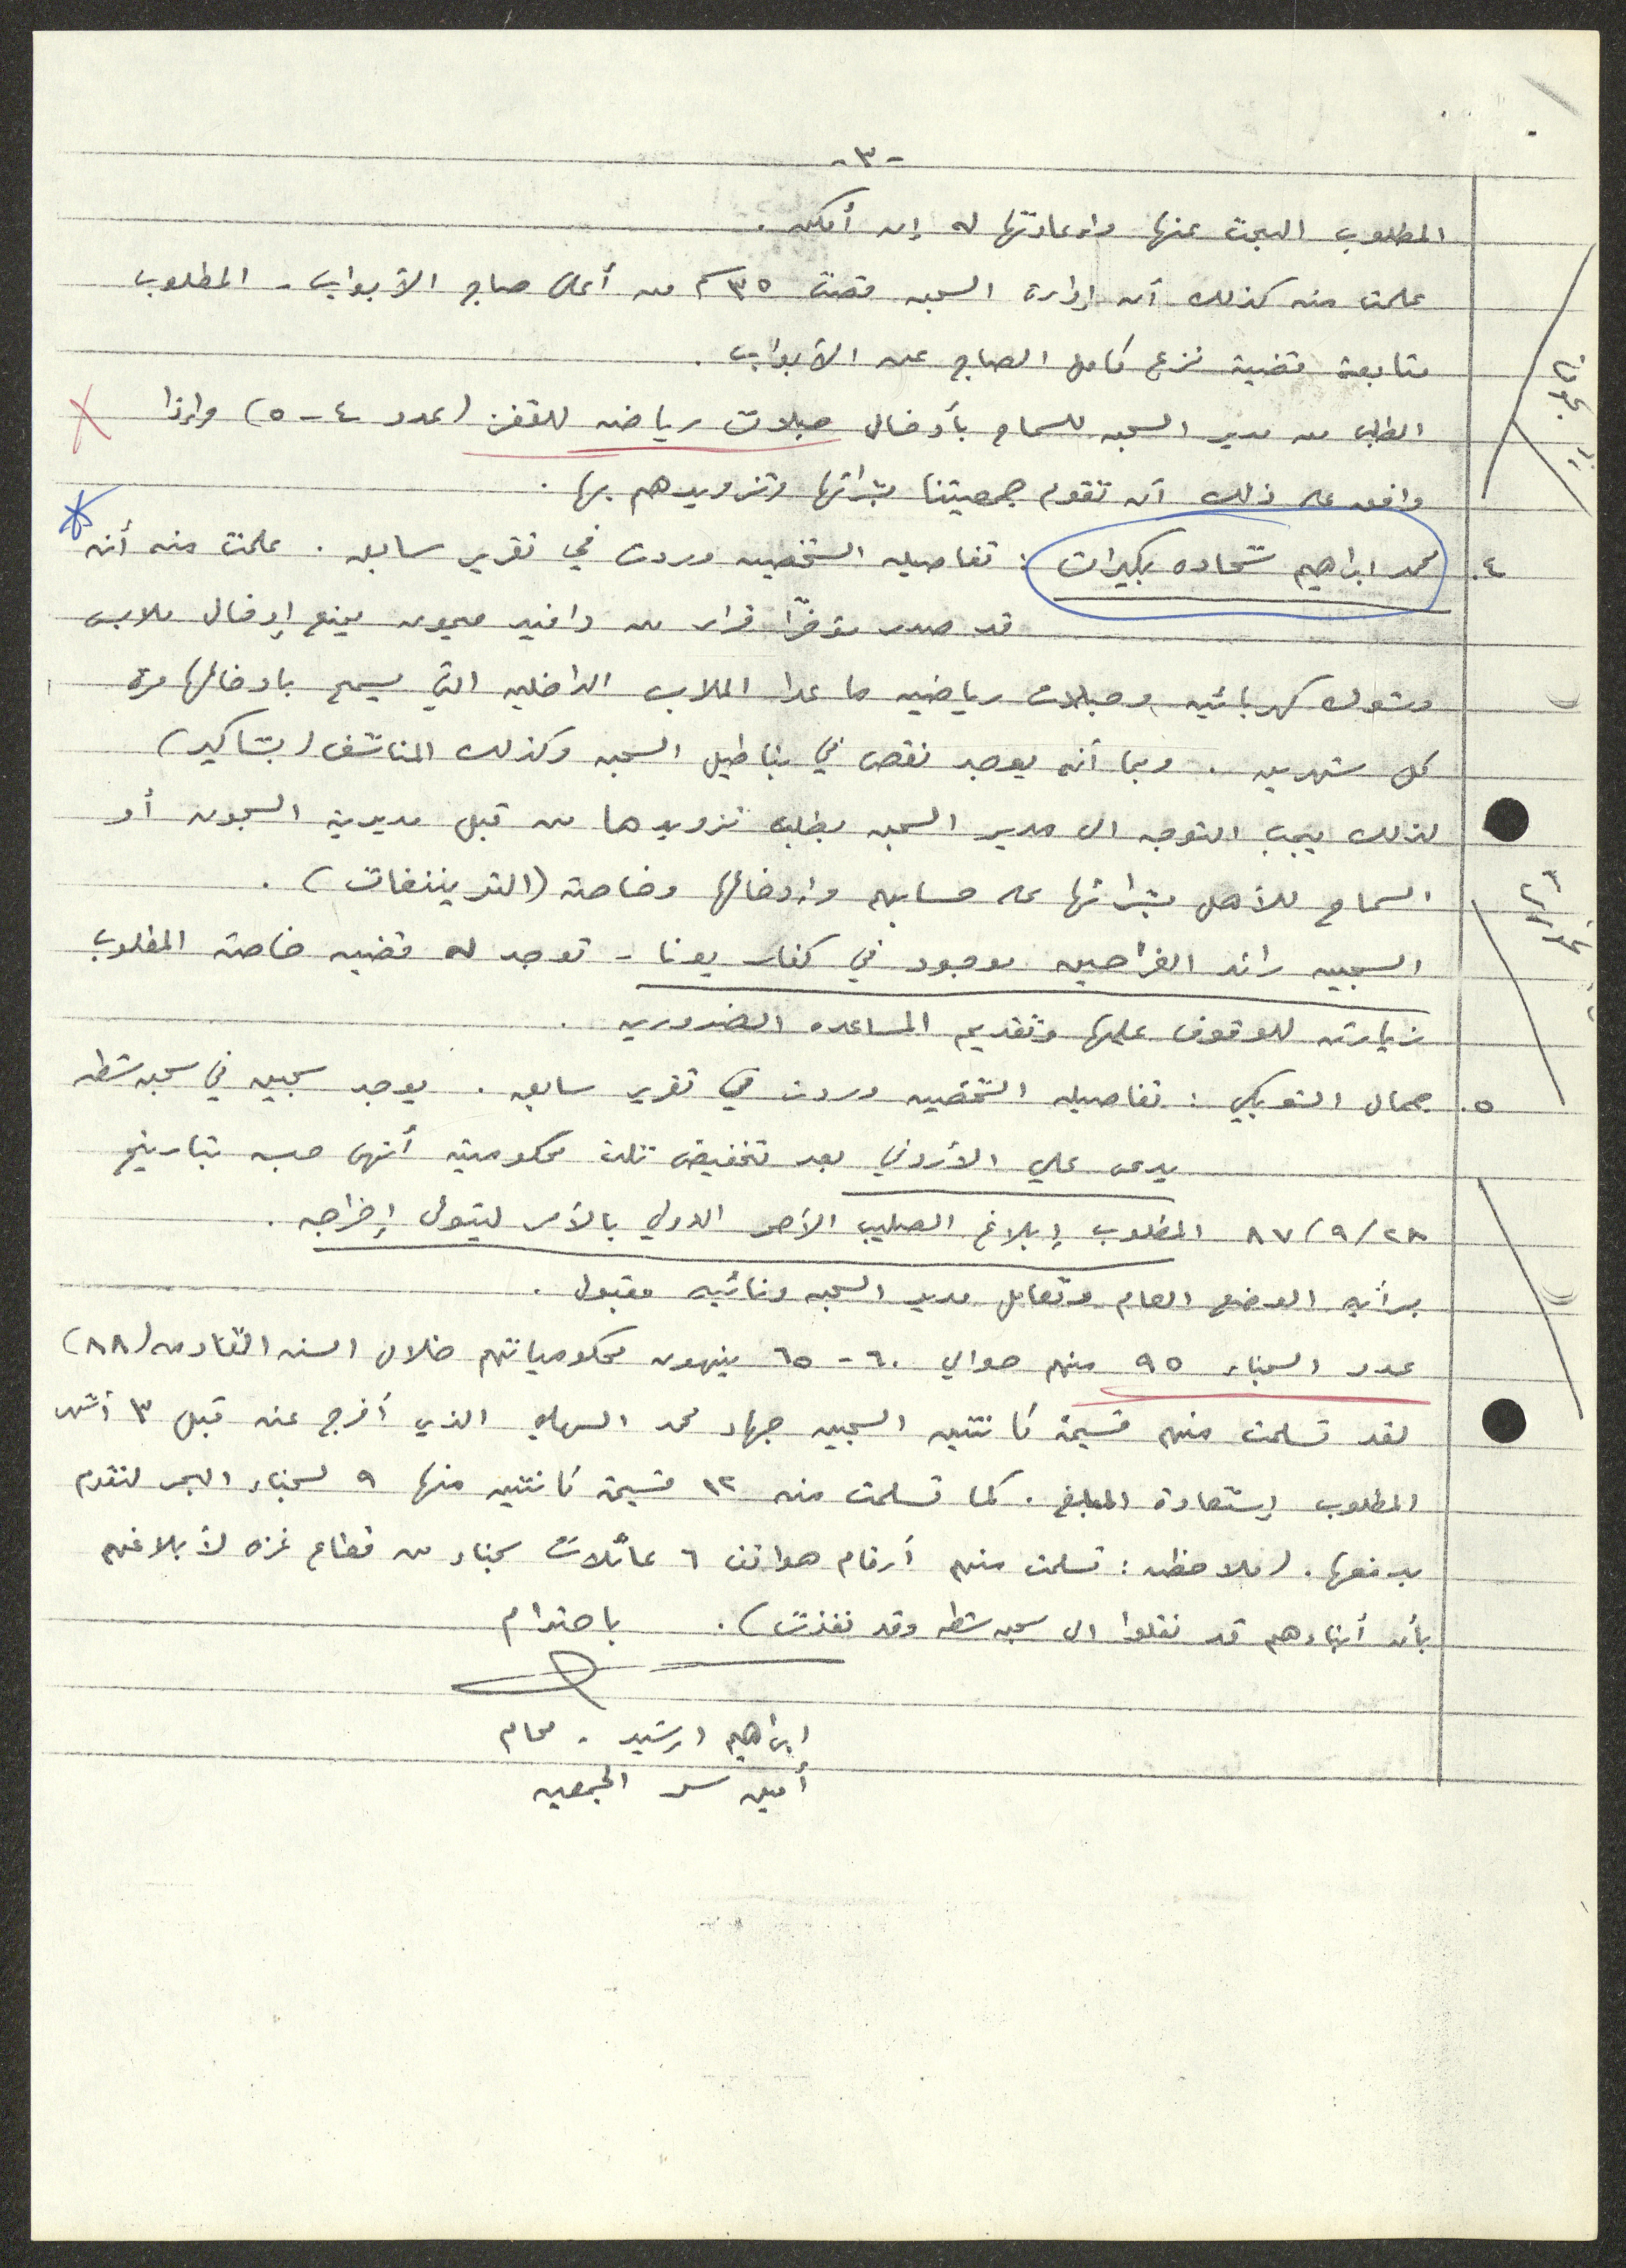 -٣-
المطلوب البحث عنها وإعادتها له إن أمكن.
علمت منه كذلك أن إدارة السجن قصت ٣٥ سم من أعلى صاج الأبواب - المطلوب
متابعة قضية نزع كامل الصاج عن الأبواب.
الطلب من مدير السجن للسماح بأدخال حبلات رياضه للقفز (عدد ٤-٥) وإذا
وافق على ذلك أن تقوم جمعيتنا بشرائها وتزويدهم بها.
٤. محمد ابراهيم شحاده بكيرات: تفاصيله الشخصيه وردت في تقرير سابق. علمت منه أنه
قد صدر مؤخرًا قرار من دافيد ميمون يمنع إدخال ملابس
وشوك كهربائيه وحبلات رياضيه ما عدا الملابس الداخليه التي يسمح بادخالها مرة
كل شهرين. وبما أنه يوجد نقص في بناطيل السجن وكذلك المناشف (بشاكير)
لذلك يجب التوجه الى مدير السجن بطلب تزويدها من قبل مديرية السجون أو
السماح للأهل بشرائها على حسابهم وإدخالها وخاصة (التريننغات).
السجين رائد الفراحين موجود في كفار يونا - توجد له قضيه خاصة المطلوب
زيارته للوقوف عليها وتقديم المساعده الضروريه.
٥. جمال الشوبكي: تفاصيله الشخصيه وردت في تقرير سابق. يوجد سجين في سجن شطه
يدعى علي الأردني بعد تخفيض ثلث محكوميته أنتهى حبسه بتاريخ
٢٨/٩/٨٧ المطلوب إبلاغ الصليب الأحمر الدولي بالأمر ليتولى إخراجه.
برأيه الوضع العام وتعامل مدير السجن ونائبه مقبول.
عدد السجناء ٩٥ منهم حوالي ٦٠-٦٥ ينهون محكومياتهم خلال السنه القادمه (٨٨)
لقد تسلمت منهم قسيمة كانتين السجين جهاد محمد السهلي الذي أفرج عنه قبل ٣ أشهر
المطلوب إستعادة المبلغ. كما تسلمت منه ١٢ قسيمة كانتين منها ٩ لسجناء البحر لنقوم
بدفعها. (ملاحظه: تسلمت منهم أرقام هواتف ٦ عائلات سجناء من قطاع غزه لأبلاغهم
بأن أبناءهم قد نقلوا الى سجن شطه وقد نفذت). باحترام
ابراهيم ارشيد - محام
أمين سر الجمعيه